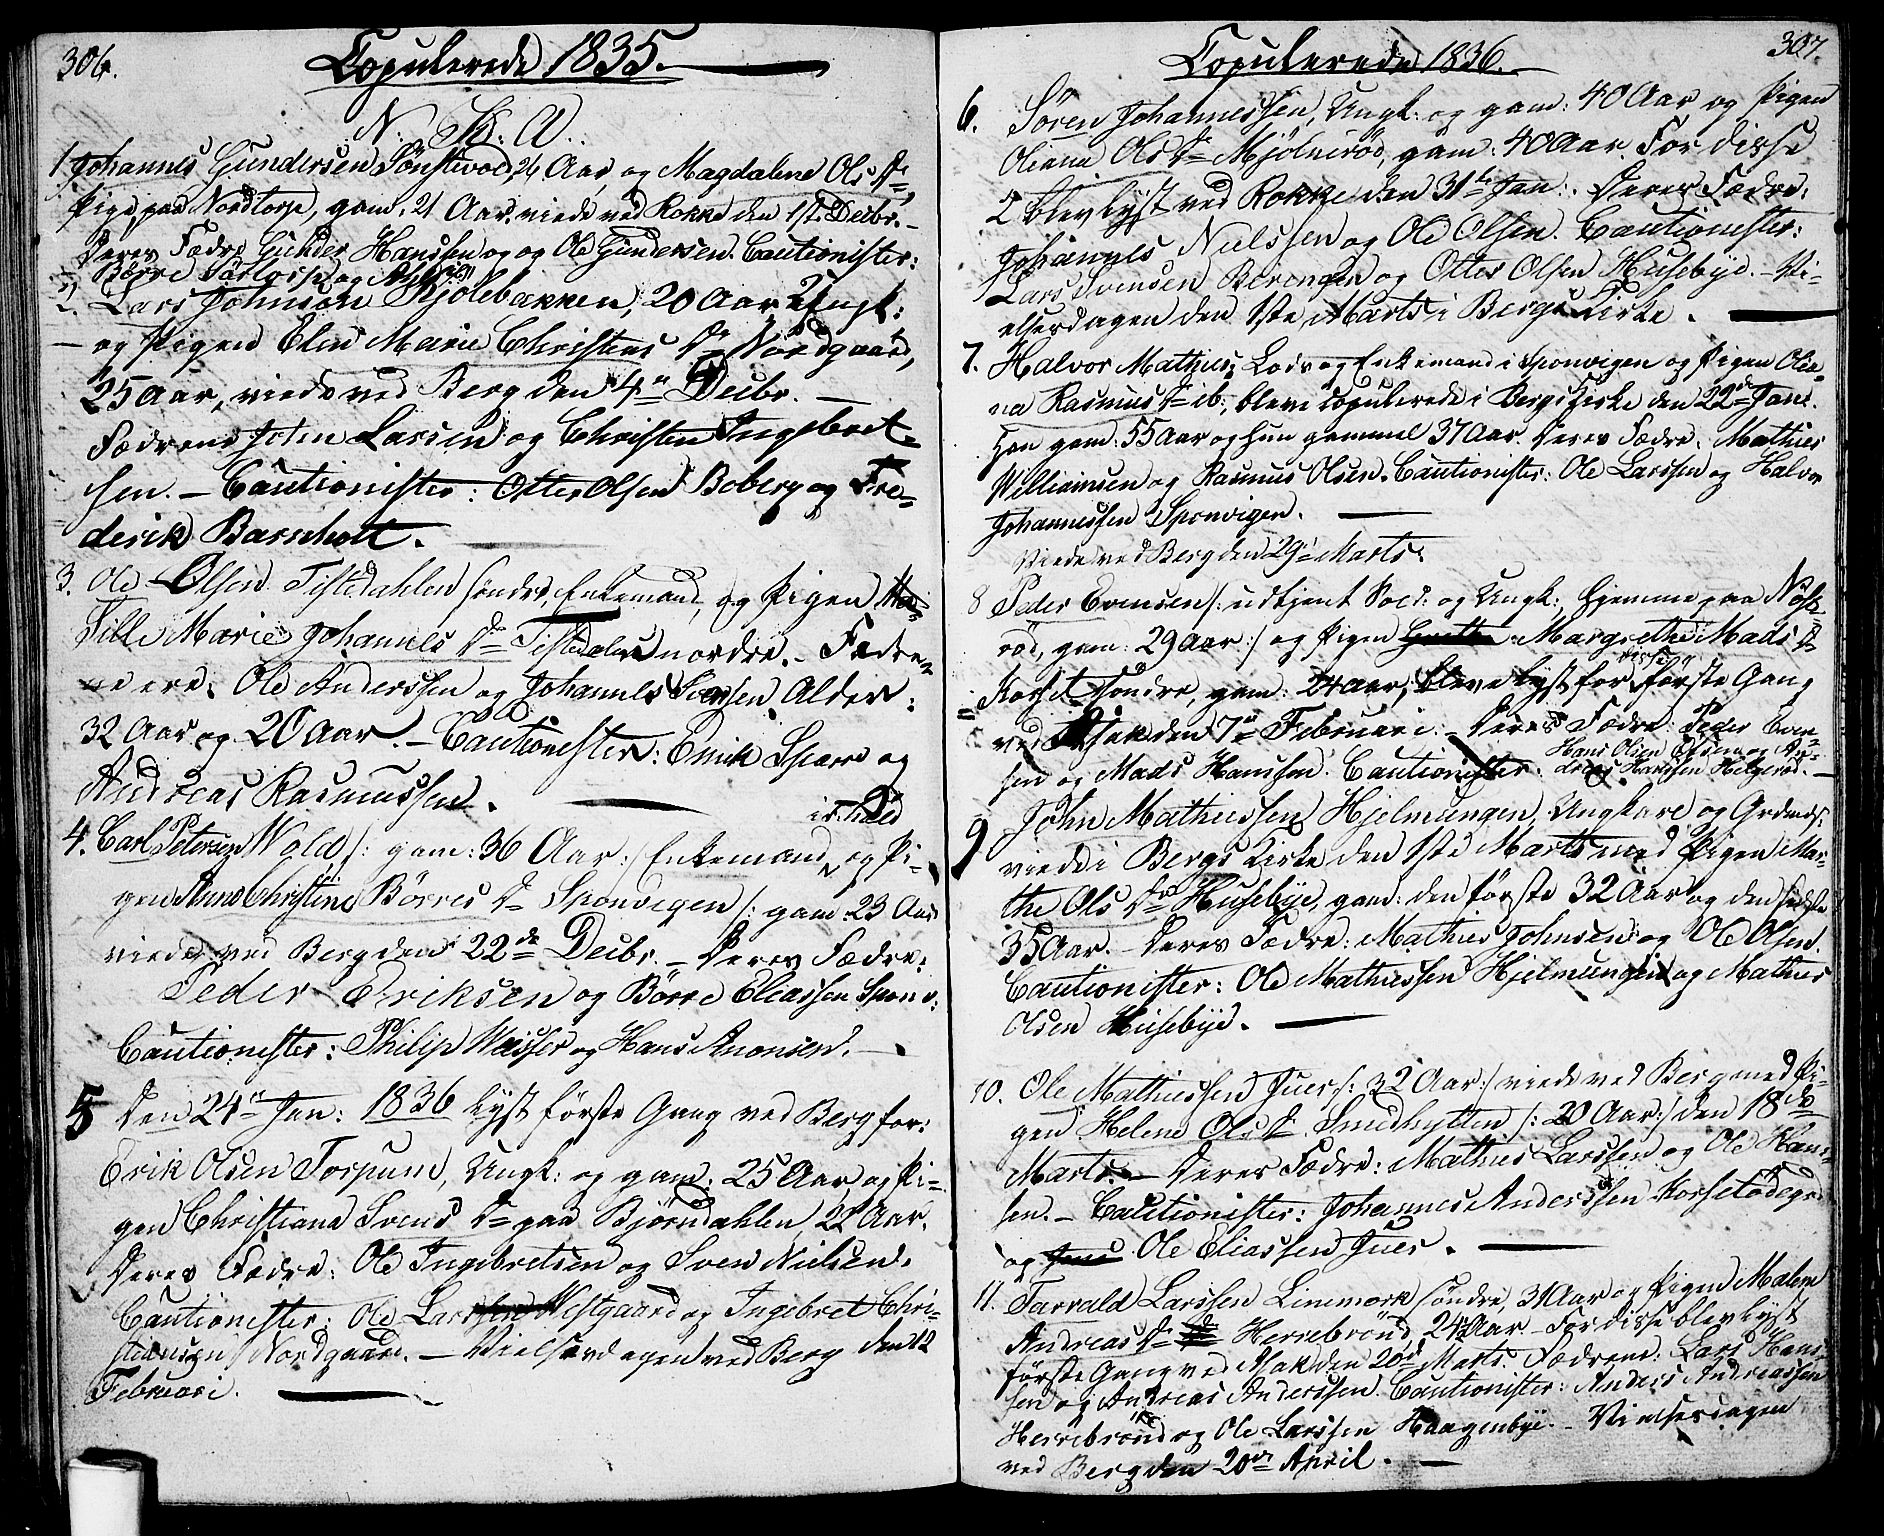 306.
Copulerede 1835.
N. K. A.
1 Johannes Gundersen Sønstevold, 26 Aar, og Magdalene Ols Dr,
Pige paa Nordtorp, gam: 21 Aar, viede ved Rokke den 1ste Decbr. –
Deres Fædre Gunder Hanssen og og Ole Gundersen. Cautionister:
Børre Sørtorp og
2. Lars Johnson Kjølebakken, 20 Aar, Ungk:
og Pigen Elen Marie Christens Dr Nordgaard,
25 Aar, viede ved Berg den 4de Decbr. –
Fædrene John Larsen og Christen Ingebret-
sen. – Cautionister: Otter Olsen Boberg og Fre-
derik Barnholt. –
3. Ole Olsen Tistedahlen søndre, Enkemand, og Pigen
Sille Marie Johannes Dr Tistedalen nordre. – Fædre-
ne ere: Ole Anderssen og Johannes Svensen. Alder:
32 Aar og 20 Aar. – Cautionister: Erik Sparre og
Andreas Rasmussen.
4. Carl Petersen Wold /: gam: 36 Aar :/ Enkemand og Pi-
gen Anne Christine Børres Dr Sponvigen /: gam: 23 Aar
viede ved Berg den 22de Decbr. – Deres Fædre:
Peder Eriksen og Børre Eliassen Sponv:
Cautionister: Philip Wasser og Hans Aronsen. –
5 Den 24de Jan: 1836 lyst første Gang ved Berg for:
Erik Olsen Torpum, Ungk: og gam: 25 Aar, og Pi-
gen Christiana Svens Dr paa Bjørndahlen, 22 Aar.
Deres Fædre: Ole Ingebretsen og Svend Nielsen.
Cautionister: Ole Larssen Westgaard og Ingebret Chri-
stiansen Nordgaard. – Vielserdagen ved Berg den 12
Februari.
307.
Copulerede 1836.
6. Søren Johannessen, Ungk: og gam: 40 Aar og Pigen
Oliana Ols Dr Mjølnerød, gam: 40 Aar. For disse
2 blev lyst ved Rokke den 31te Jan: Deres Fædre:
Johannes Nielssen og Ole Olsen. Cautionister:
Lars Svensen Berengen og Otter Olsen Husebye. – Vi-
elserdagen den 1ste Marts i Bergs Kirke.
7. Halvor Mathies: Lods og Enkemand i Sponvigen og Pigen Olea-
na Rasmus Dr ib:, bleve copulerede i Bergs Kirke den 22de Jan:
Han gam: 55 Aar og hun gammel 37 Aar. Deres Fædre: Mathies
Williamsen og Rasmus Olsen. Cautionister: Ole Larssen og Halvor
Johannessen Sponvigen.
Viede ved Berg den 29de Marts.
8 Peder Evensen /: udtjent Sold: og Ungk:, hjemme paa Nøk-
rød, gam: 29 Aar :/ og Pigen Margrethe Mads Dr
Korset søndre, gam: 24 Aar, bleve lyst for disse første Gang
ved Asak den 7de Februari. – Deres Fædre: Peder Even-
sen og Mads Hanssen. Cautionister: Hans Olsen og An-
dreas Hanssen Helgerød. –
9 John Mathiessen Hjelmungen, Ungkare og Grdmds:
viede i Bergs Kirke den 1ste Marts med Pigen Mar-
the Ols Dr Husebye, gam: den første 32 Aar og den sidste
35 Aar. – Deres Fædre: Mathies Johnsen og Ole Olsen.
Cautionister: Ole Mathiessen Hjelmungen og Mathies
Olsen Husebye.
10. Ole Mathiessen Juer /: 32 Aar :/ viede ved Berg med Pi-
gen Helene Ols Dr Smidhytten /: 20 Aar :/ den 18de
Marts. – Deres Fædre: Mathies Larssen og Ole Hans-
sen. – Cautionister: Johannes Anderssen Korsetødegrd
og Ole Eliassen Juer.
11. Tarvald Larssen Linemork søndre, 31 Aar og Pigen Malene
Andreas Dr Herrebrønd, 24 Aar – For disse blev lyst
første Gang ved Asak den 20de Marts. Fædrene: Lars Hans-
sen og Andreas Anderssen. Cautionister: Anders Andreassen
Herrebrønd og Ole Larssen Haagenbye. – Vielserdagen
ved Berg den 20de April. –